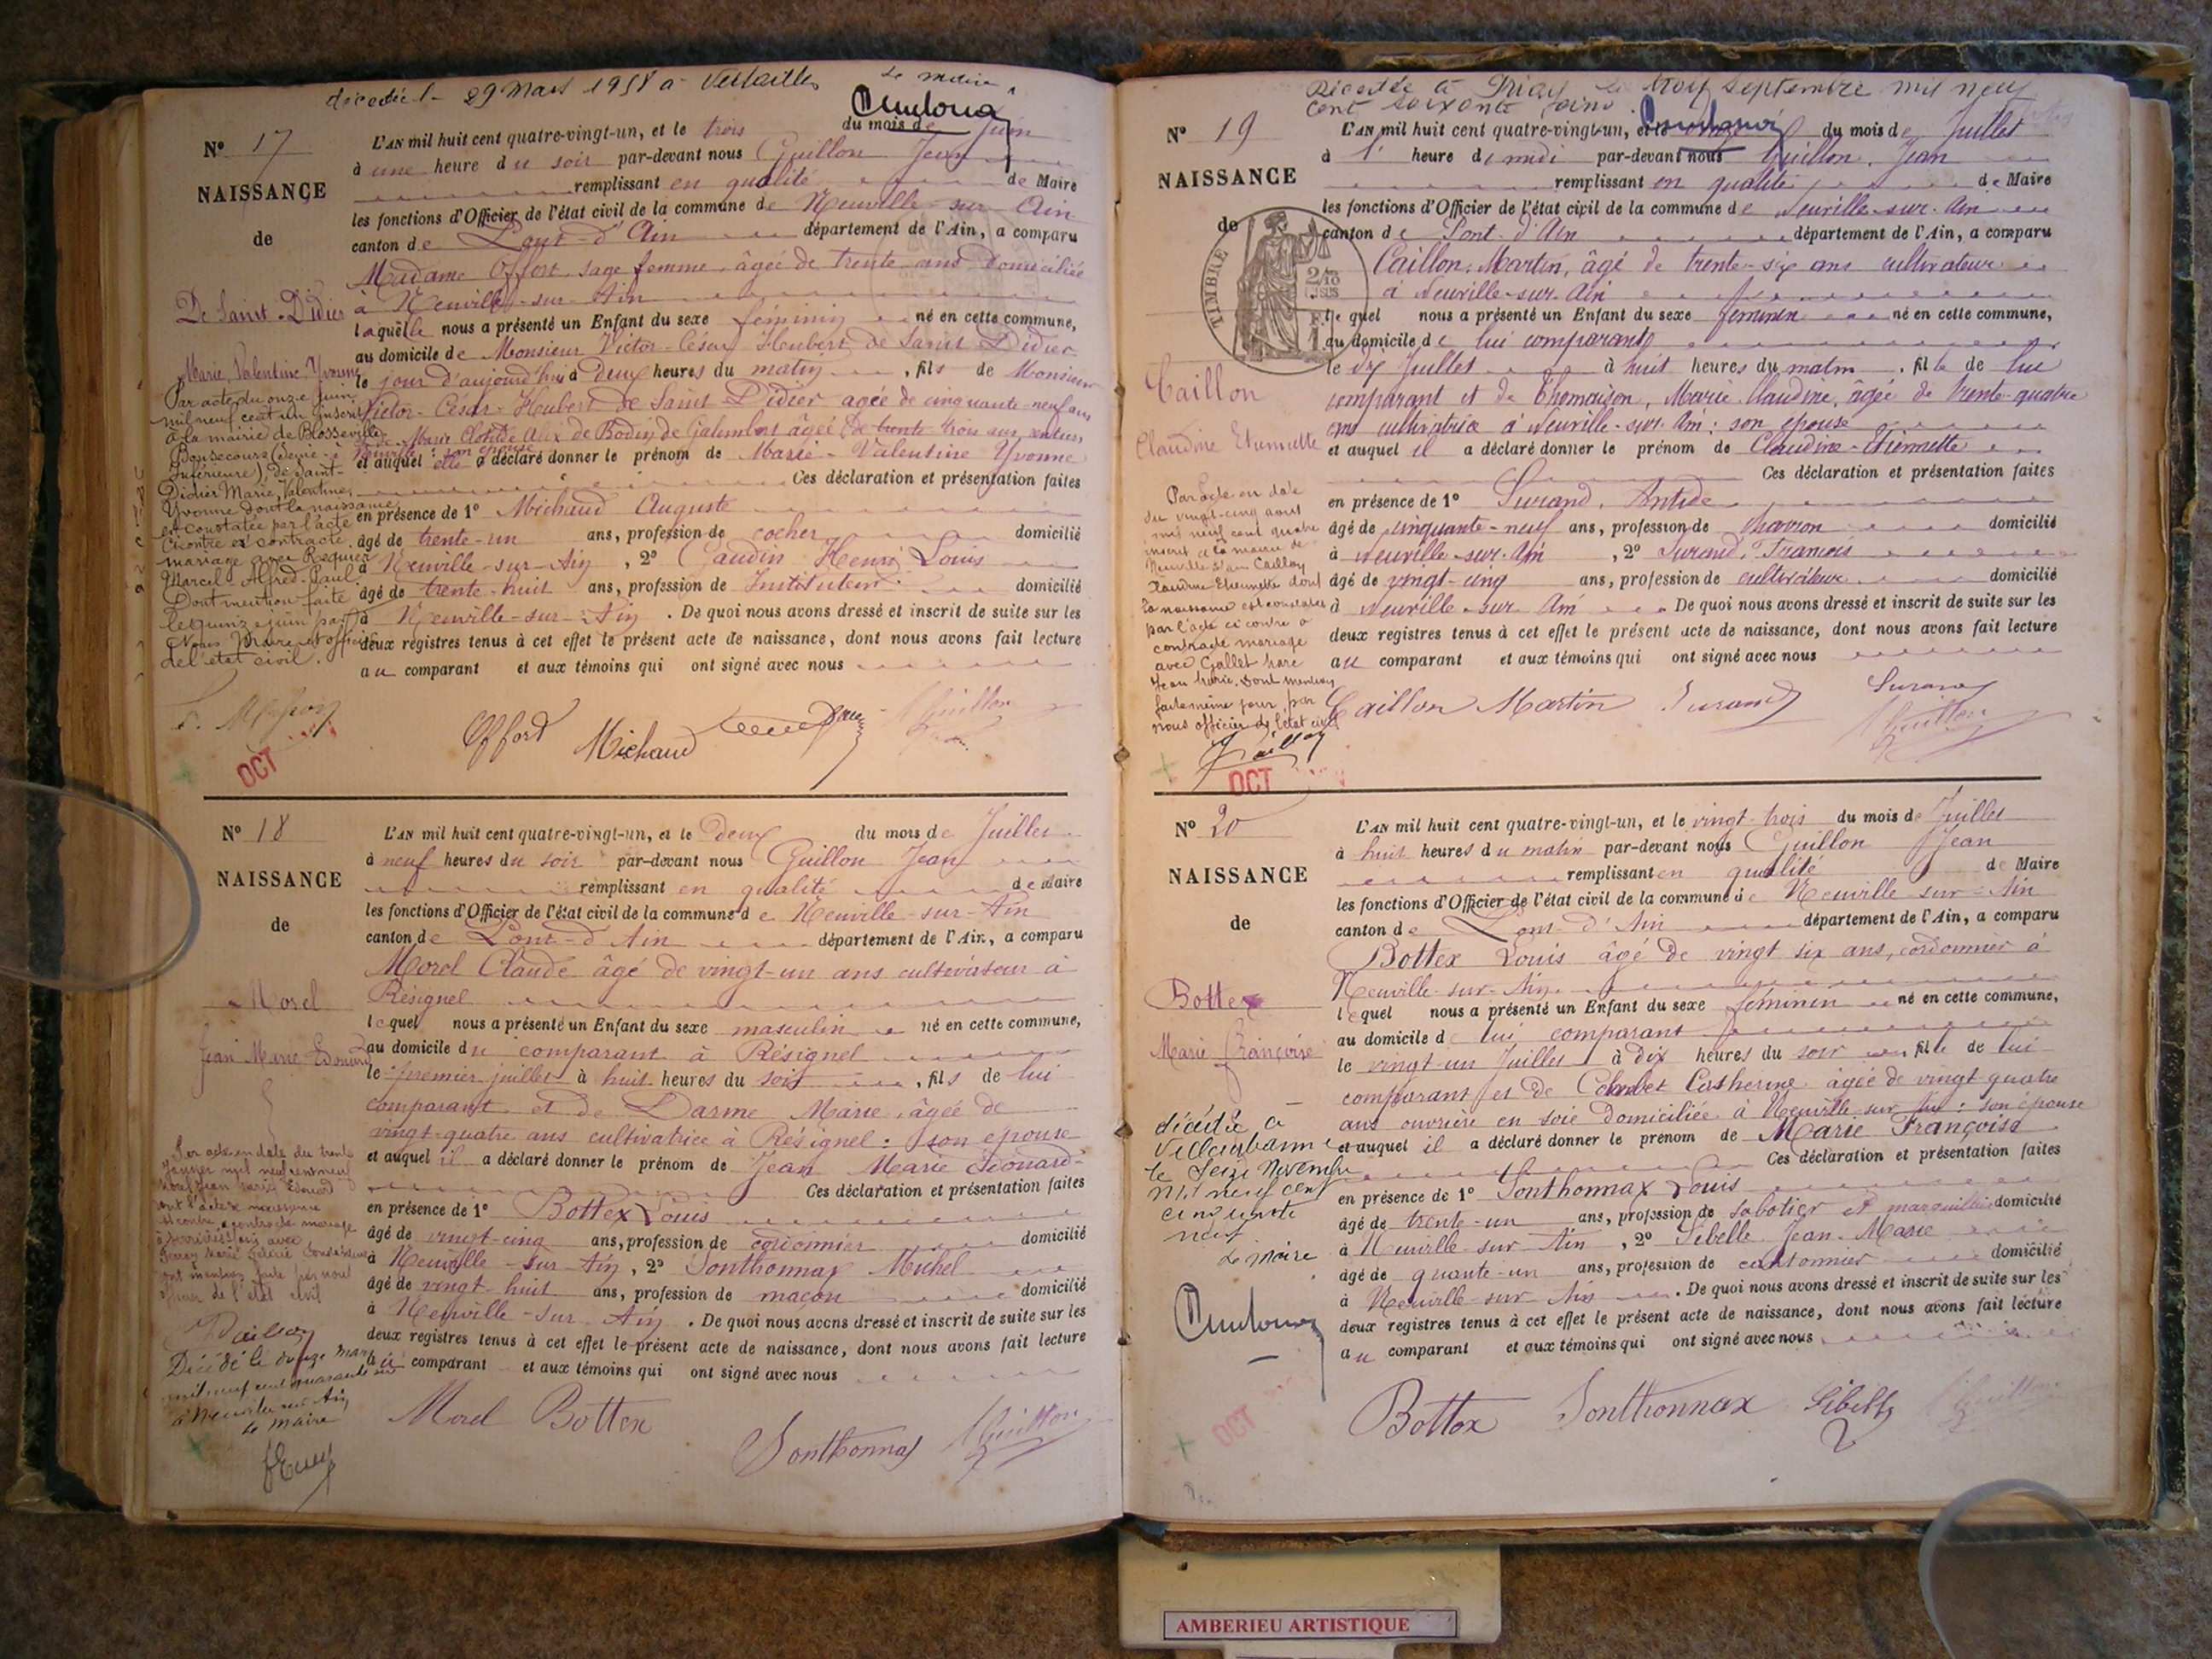 décédée le 29 Mars 1958 à Versailles
Le maire
Nº 17
NAISSANCE
de
De Saint-Didier
Marie, Valentine Yvonne
L'AN mil huit cent quatre-vingt-un, et le trois du mois de Juin
à une heure du soir par-devant nous Guillon Jean
remplissant en qualité de Maire
les fonctions d'Officier de l'état civil de la commune de Neuville-sur-Ain
canton de Pont-d'Ain département de l'Ain, a comparu
Madame Offort sage femme âgée de trente ans domiciliée
à Neuville-sur-Ain
laquelle nous a présenté un Enfant du sexe féminin né en cette commune,
au domicile de Monsieur Victor-César Hubert de Saint Didier
le jour d'aujourd'hui à deux heures du matin, fils de Monsieur
Victor-César-Hubert de Saint Didier agée de cinquante-neuf ans
et de Marie Clotilde Alix de Bodin de Galembert âgée de trente trois ans, rentiers,
Neuville : son épouse
et auquel elle a déclaré donner le prénom de Marie-Valentine Yvonne
Ces déclaration et présentation faites
en présence de 1º Michaud Auguste
âgé de trente-un ans, profession de cocher domicilié
à Neuville-sur-Ain, 2º Gaudin Henri Louis
âgé de trente-huit ans, profession de Instituteur domicilié
à Neuville-sur-Ain. De quoi nous avons dressé et inscrit de suite sur les
deux registres tenus à cet effet le présent acte de naissance, dont nous avons fait lecture
au comparant et aux témoins qui ont signé avec nous
Par acte du onze juin
mil neuf cent un inscrit
à la mairie de Blosseville
Bonsecours (Seine-
Inférieure), de Saint-
Didier Marie, Valentine,
Yvonne dont la naissance
est constatée par l'acte
ci contre a contracté
mariage avec Requier
Marcel Alfred Paul
Dont mention faite
le quinze juin par
Nous Maire et officier
de l'état civil.
Offort Michaud Guillon
OCT
Nº 18
NAISSANCE
de
Morel
Jean Marie Edouard
L'AN mil huit cent quatre-vingt-un, et le deux du mois de Juillet
à neuf heures du soir par-devant nous Guillon Jean
remplissant en qualité de Maire
les fonctions d'Officier de l'état civil de la commune de Neuville-sur-Ain
canton de Pont-d'Ain département de l'Ain, a comparu
Morel Claude âgé de vingt-un ans cultivateur à
Résignel
lequel nous a présenté un Enfant du sexe masculin né en cette commune,
au domicile du comparant à Résignel
le premier juillet à huit heures du soir, fils de lui
comparant et de Darme Marie, âgée de
vingt-quatre ans cultivatrice à Résignel : son épouse
et auquel il a déclaré donner le prénom de Jean Marie Edouard
Ces déclaration et présentation faites
en présence de 1º Bottex Louis
âgé de vingt-cinq ans, profession de cordonnier domicilié
à Neuville-sur-Ain, 2º Sonthonnax Michel
âgé de vingt huit ans, profession de maçon domicilié
à Neuville-sur-Ain. De quoi nous avons dressé et inscrit de suite sur les
deux registres tenus à cet effet le présent acte de naissance, dont nous avons fait lecture
au comparant et aux témoins qui ont signé avec nous
Par acte en date du trente
Janvier mil neuf cent neuf
Morel Jean Marie Edouard
dont l'acte de naissance
est contre a contracté mariage
avec
dont mention faite par nous
officier de l'état civil
Décédé le douze mars
mil neuf cent quarante six
à Neuville sur Ain
Le maire
Morel Bottex
Sonthonnax Guillon
Décédée à le trois Septembre mil neuf
cent soixante cinq.
Nº 19
NAISSANCE
de
TIMBRE
Caillon
Claudine Etiennette
L'AN mil huit cent quatre-vingt-un, et le du mois de Juillet
à 1 heure de midi par-devant nous Guillon Jean
remplissant en qualité de Maire
les fonctions d'Officier de l'état civil de la commune de Neuville-sur-Ain
canton de Pont-d'Ain département de l'Ain, a comparu
Caillon, Martin, âgé de trente-six ans cultivateur
à Neuville-sur-Ain
lequel nous a présenté un Enfant du sexe féminin né en cette commune,
au domicile de lui comparant
le dix Juillet à huit heures du matin, fille de lui
comparant et de Thomasson, Marie Claudine, âgée de trente-quatre
ans cultivatrice à Neuville-sur-Ain : son épouse
et auquel il a déclaré donner le prénom de Claudine-Etiennette
Ces déclaration et présentation faites
en présence de 1º Durand, Antide
âgé de cinquante-neuf ans, profession de charron domicilié
à Neuville-sur-Ain, 2º Durand, François
âgé de vingt-cinq ans, profession de cultivateur domicilié
à Neuville-sur-Ain. De quoi nous avons dressé et inscrit de suite sur les
deux registres tenus à cet effet le présent acte de naissance, dont nous avons fait lecture
au comparant et aux témoins qui ont signé avec nous
Par acte en date
du vingt-cinq août
mil neuf cent quatre
inscrit à la mairie de
Neuville s/ Ain Caillon
Claudine Etiennette dont
la naissance est constatée
par l'acte ci contre a
contracté mariage
avec Gallet
Jean Marie. Dont mention
faite même jour par
nous officier de l'état civil
Caillon Martin Durand Durand
Guillon
OCT
Nº 20
NAISSANCE
de
Bottex
Marie Françoise
L'AN mil huit cent quatre-vingt-un, et le vingt-trois du mois de Juillet
à huit heures du matin par-devant nous Guillon Jean
remplissant en qualité de Maire
les fonctions d'Officier de l'état civil de la commune de Neuville-sur-Ain
canton de Pont-d'Ain département de l'Ain, a comparu
Bottex Louis âgé de vingt six ans, cordonnier à
Neuville-sur-Ain
lequel nous a présenté un Enfant du sexe féminin né en cette commune,
au domicile de lui comparant
le vingt-un Juillet à dix heures du soir fille de lui
comparant et de Colombet Catherine âgée de vingt quatre
ans ouvrière en soie domiciliée à Neuville sur Ain : son épouse
et auquel il a déclaré donner le prénom de Marie Françoise
Ces déclaration et présentation faites
en présence de 1º Sonthonnax Louis
âgé de trente-un ans, profession de sabotier et marguillier domicilié
à Neuville-sur-Ain, 2º Sibelle Jean-Marie
âgé de quante-un ans, profession de cantonnier domicilié
à Neuville-sur-Ain. De quoi nous avons dressé et inscrit de suite sur les
deux registres tenus à cet effet le présent acte de naissance, dont nous avons fait lecture
au comparant et aux témoins qui ont signé avec nous
décédée à
Villeurbanne
le Seize Novembre
mil neuf cent
cinquante
neuf
Le maire
Bottex Sonthonnax Sibelle Guillon
OCT
AMBERIEU ARTISTIQUE